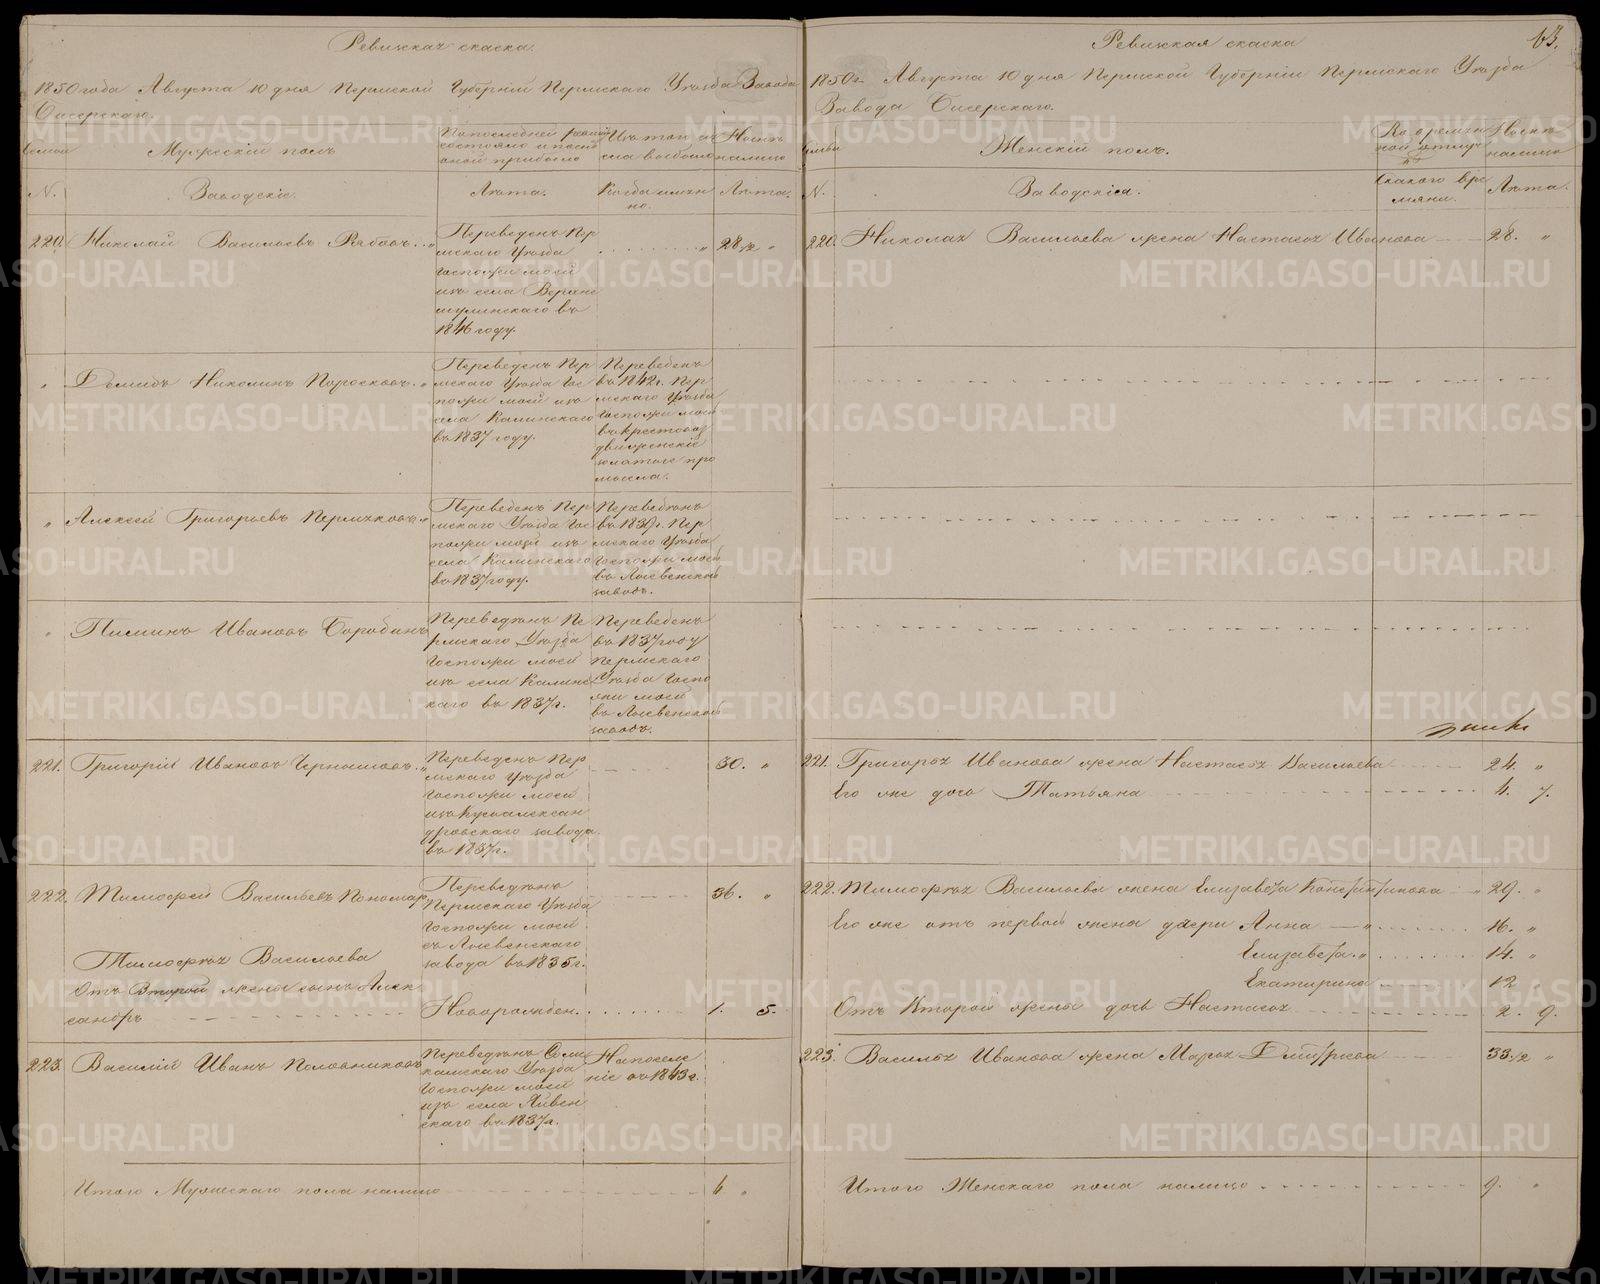 Ревизская скаска.
1850 года Августа 10 дня Пермской Губерніи Пермскаго Уѣзда Завода
Бисерскаго.
Семьи
Мужескій полъ
По последней ревизіи
состояло и после
оной прибыло
Изъ того чи
сла выбыло
Ныне
налицо
N.
Заводскіе.
Лѣта.
Когда имян
но.
Лѣта.
220. Николай Васильевъ Рябовъ
Переведенъ Пер
мскаго Уѣзда
Госпожи моей
изъ села Верхне
мулинскаго въ
1846 году.
28 1/2 "
" Демидъ Никоминъ
Переведенъ Пер
мскаго Уѣзда Гос
пожи моей изъ
села Калинскаго
въ 1837 году.
Переведенъ
въ 1842 г. Пер
мскаго Уѣзда
Госпожи моей
въ Крестовоз
движенскіе
золотые про
мысла.
" Алексей Григорьевъ Пермяковъ "
Переведенъ Пер
мскаго Уѣзда Гос
пожи моей изъ
села Калинскаго
въ 1837 году.
Переведенъ
въ 1839 г. Пер
мскаго Уѣзда
Госпожи моей
въ Лысвенской
заводъ.
" Пиминъ Ивановъ
Переведенъ Пе
рмскаго Уѣзда
Госпожи моей
изъ села Калинс
каго въ 1837 г.
Переведенъ
въ 1837 году
Пермскаго
Уѣзда Госпо
жи моей
въ Лысвенской
заводъ.
221. Григорій Ивановъ Чернышовъ "
Переведенъ Пер
мскаго Уѣзда
Госпожи моей
изъ Кусьалексан
дровскаго завода
въ 1837 г.
30. "
222. Тимофей Васильевъ Пономар
Переведенъ
Пермскаго Уѣзда
Госпожи моей
съ Лысвенскаго
завода въ 1835 г.
36. "
Тимофея Васильева
Отъ Второй жены сынъ Алек
сандръ
Новорожден.
1. 5.
223. Василій Иванъ Половниковъ
Переведенъ Соли
камскаго Уѣзда
Госпожи моей
изъ села Яйвен
скаго въ 1837 г.
На поселе
ніе въ 1843 г.
Итого Мужескаго пола налицо 4 "
63.
Ревизская скаска
1850 г. Августа 10 дня Пермской Губерніи Пермскаго Уѣзда
Завода Бисерскаго.
Семьи
Женскій полъ.
Во времян
ной отлуч
кѣ
Ныне
налицо
N.
Заводскія.
Скакого вре
мяни.
Лѣта.
220. Николая Васильева жена Настасья Иванова 28. "
221. Григорья Иванова жена Настасья Васильева 24. "
Его же дочь Татьяна 4. 7.
222. Тимофея Васильева жена Елизавета Константинова " 29. "
Его же отъ первой жены дочери Анна 16. "
Елизавета " 14. "
Екатирина 12 "
Отъ Второй жены дочь Настасья 2. 9.
223. Василья Иванова жена Марья Дмитріева 33 1/2 "
Итого Женскаго пола налицо 9. "